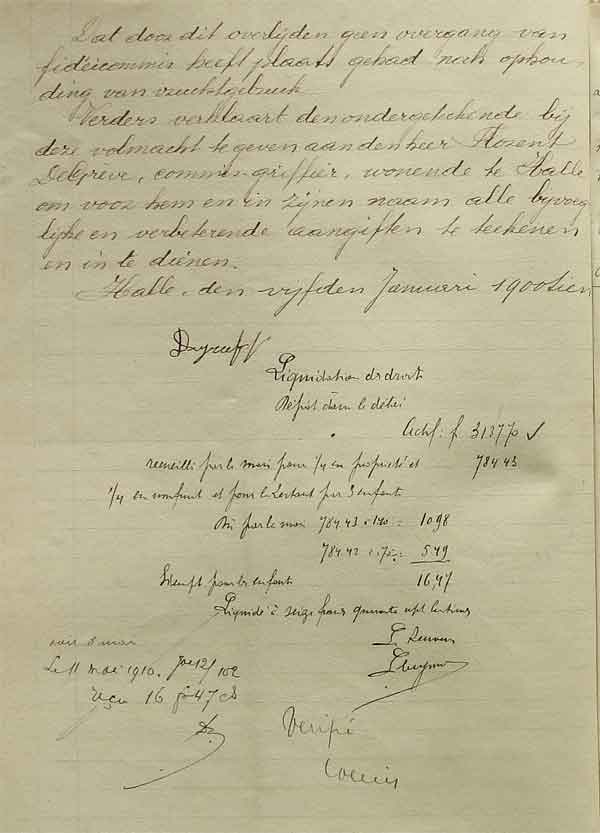 Dat door dit overlijden geen overgang van
fideicommis heeft plaats gehad noch ophou-
ding van vruchtgebruik
Verders verklaart den ondergeteekende bij
deze volmacht te geven aan den heer Florent
DeGreve, commis-griffier, wonende te Halle
om voor hem en in zijnen naam alle bijvoeg
lijke en verbeterende aangiften te teekenen
en in te dienen.
Halle, den vijfden Januari 1900tien
Liquidation de droit
Dépôt dans le délai
Actif: f. 3137 70
recueilli par le mari pour 1/4 en propriété et 784 43
1/4 en usufruit et pour le restant par 3 enfants
Dû par le mari 784.43 à 1.40 = 10 98
784.42 à 0.70 = 5 49
Exempt pour les enfants 16,47
Liquidé à seize francs quarante sept centimes
Le Receveur
Le 11 mai 1910. 12/102
Reçu 16 fr 47 cs
Vérifié